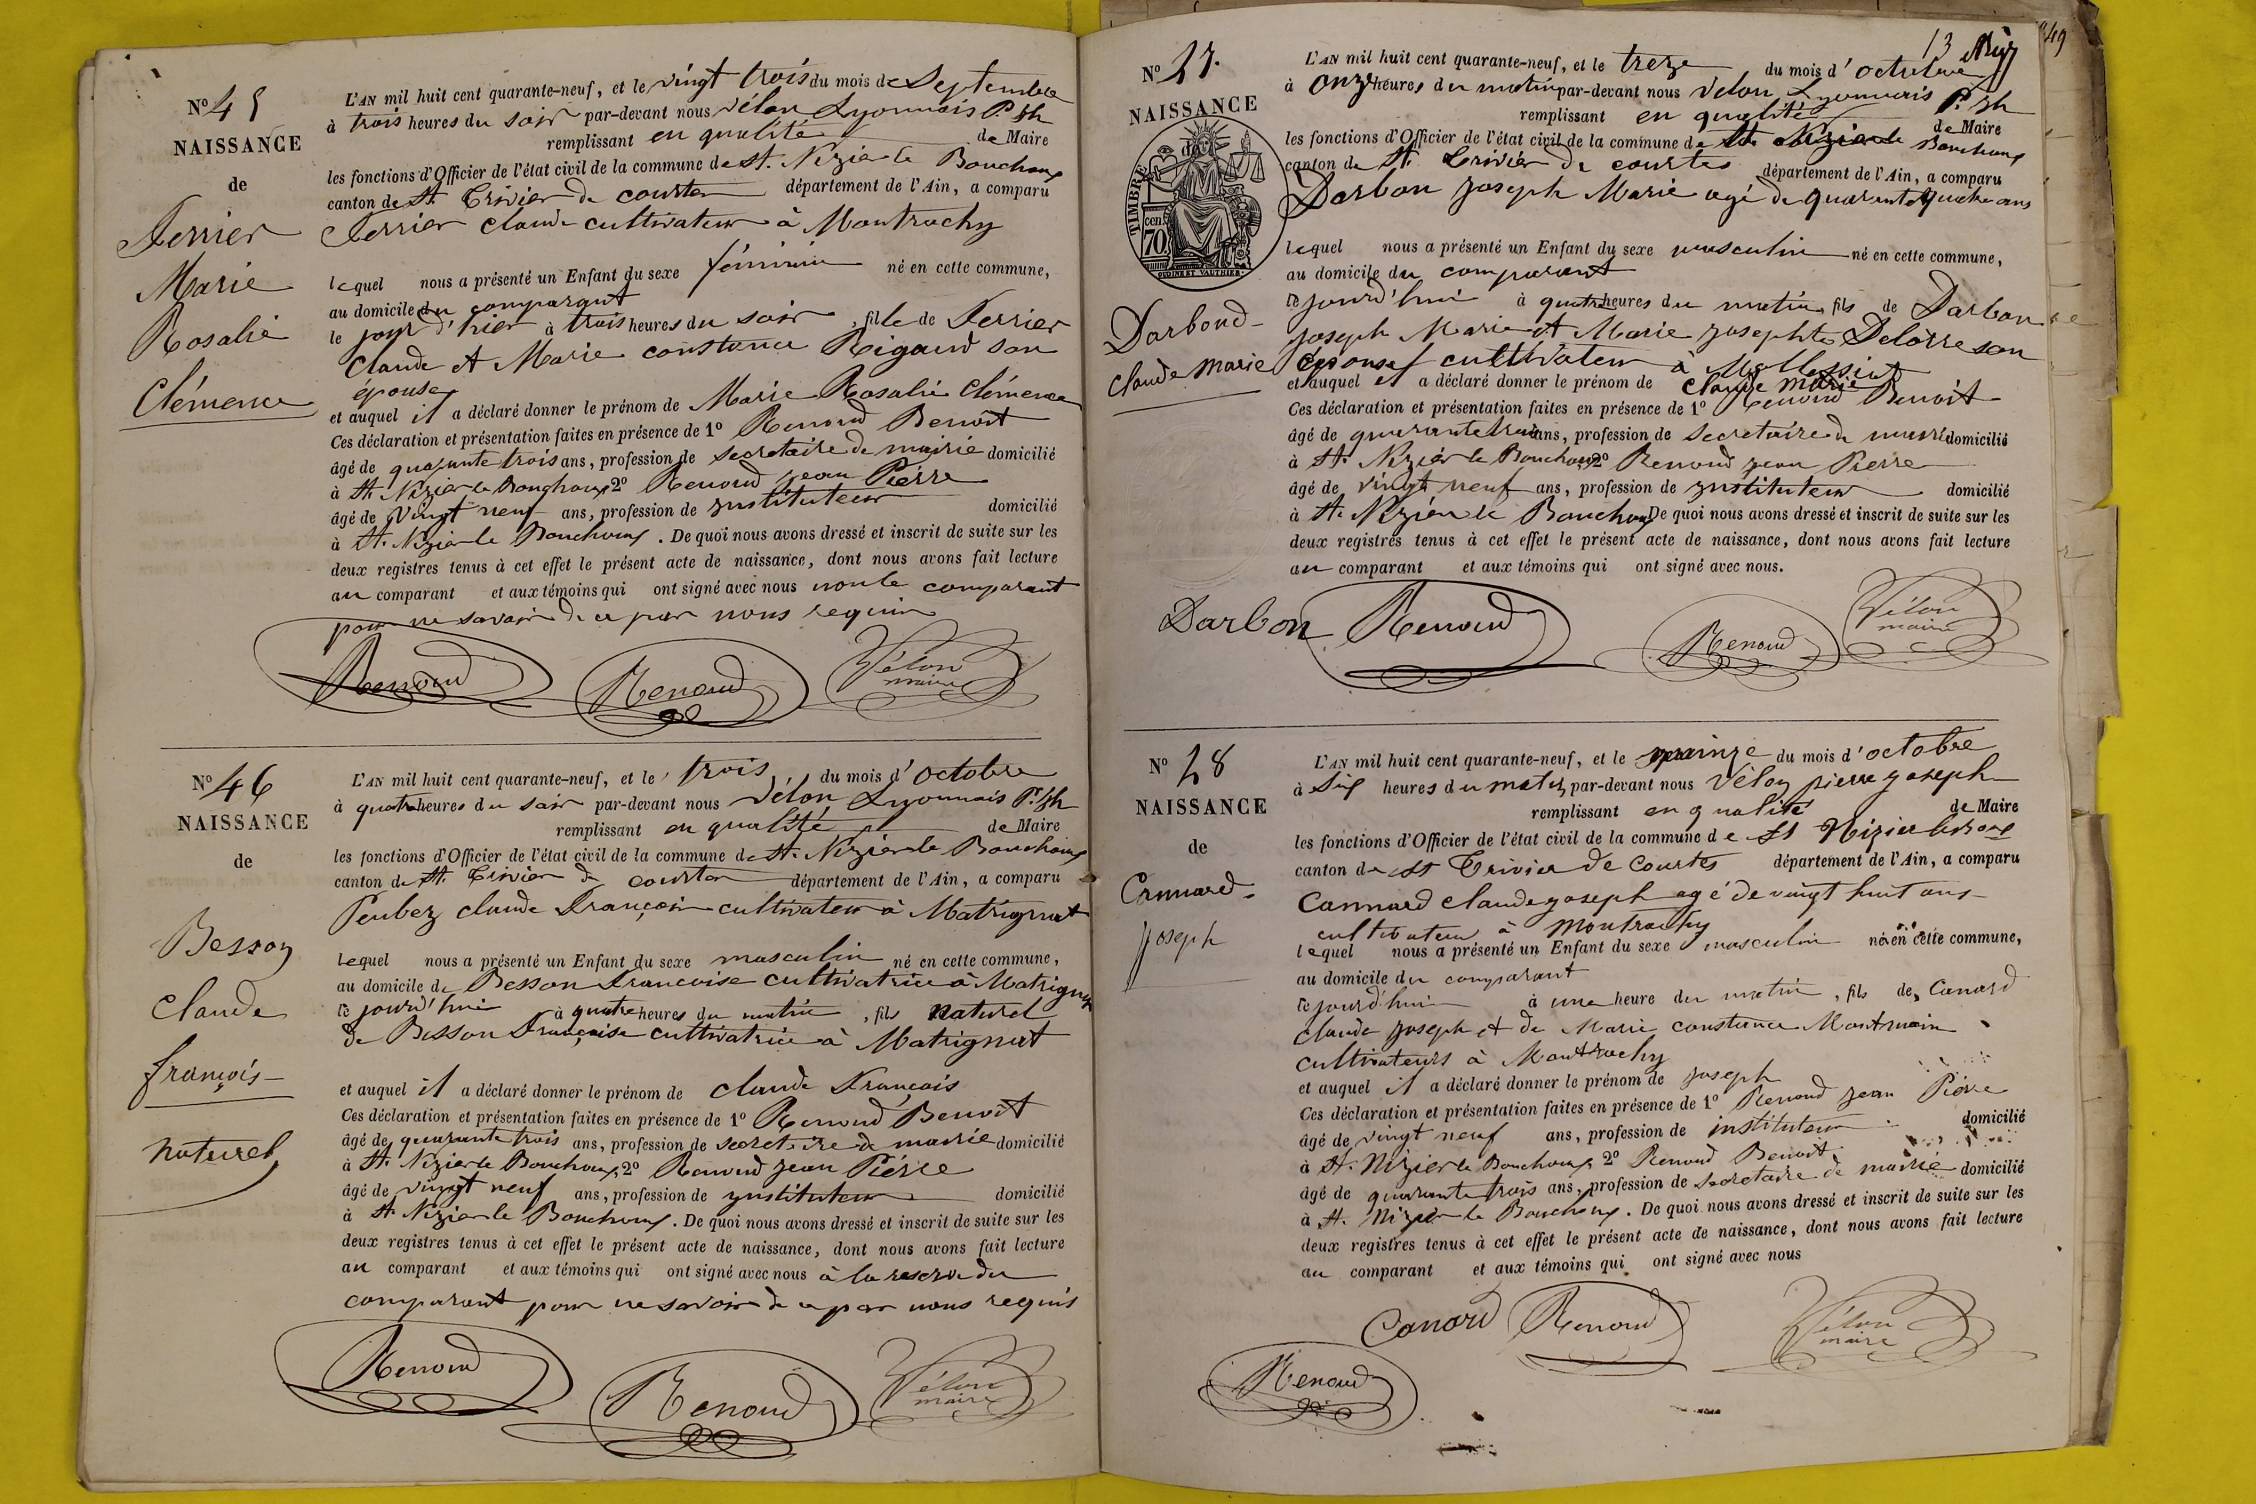 N° 45
NAISSANCE
de
Ferrier
Marie
Rosalie
Clémence
L'AN mil huit cent quarante-neuf, et le vingt trois du mois de Septembre
à trois heures du soir par-devant nous Vélon Lyonnais P. Jh
remplissant en qualité de Maire
les fonctions d'Officier de l'état civil de la commune de St. Nizier le Bouchoux
canton de St. Trivier de courtes département de l'Ain, a comparu
Ferrier claude cultivateur à Montrachy
lequel nous a présenté un Enfant du sexe féminin né en cette commune,
au domicile du comparant
le jour d'hier à trois heures du soir, fille de Ferrier
Claude et Marie constance Rigaud son
épouse
et auquel il a déclaré donner le prénom de Marie Rosalie Clémence
Ces déclaration et présentation faites en présence de 1° Renoud Benoit
âgé de quarante trois ans, profession de secretaire de mairie domicilié
à St. Nizier le Bouchoux 2° Renoud jean Pierre
âgé de vingt neuf ans, profession de instituteur domicilié
à St. Nizier le Bouchoux. De quoi nous avons dressé et inscrit de suite sur les
deux registres tenus à cet effet le présent acte de naissance, dont nous avons fait lecture
au comparant et aux témoins qui ont signé avec nous non le comparant
pour ne savoir de ce par nous requis
Renoud Renoud Vélon
maire
N° 46
NAISSANCE
de
Besson
Claude
françois
naturel
L'AN mil huit cent quarante-neuf, et le trois du mois d'octobre
à quatre heures du soir par-devant nous Vélon Lyonnais P. Jh
remplissant en qualité de Maire
les fonctions d'Officier de l'état civil de la commune de St. Nizier le Bouchoux
canton de St. Trivier de courtes département de l'Ain, a comparu
Peubez claude François cultivateur à Matrignat
lequel nous a présenté un Enfant du sexe masculin né en cette commune,
au domicile de Besson Francoise cultivatrice à Matrignat
le jourd'hui à quatre heures du matin, fils naturel
de Besson Françoise cultivatrice à Matrignat
et auquel il a déclaré donner le prénom de claude François
Ces déclaration et présentation faites en présence de 1° Renoud Benoit
âgé de quarante trois ans, profession de secretaire de mairie domicilié
à St. Nizier le Bouchoux 2° Renoud jean Piérre
âgé de vingt neuf ans, profession de instituteur domicilié
à St. Nizier le Bouchoux. De quoi nous avons dressé et inscrit de suite sur les
deux registres tenus à cet effet le présent acte de naissance, dont nous avons fait lecture
au comparant et aux témoins qui ont signé avec nous à la reserve du
comparant pour ne savoir de ce par nous requis
Renoud Renoud Vélon
maire
13
49
N° 47.
NAISSANCE
de
TIMBRE
70 cen
Darbond
claude Marie
L'AN mil huit cent quarante-neuf, et le treze du mois d'octobre
à onze heures du matin par-devant nous Velon Lyonnais P. Jh
remplissant en qualité de Maire
les fonctions d'Officier de l'état civil de la commune de St. Nizier le Bouchoux
canton de St. Trivier de courtes département de l'Ain, a comparu
Darbon joseph Marie agé de quarante quatre ans
lequel nous a présenté un Enfant du sexe masculin né en cette commune,
au domicile du comparant
le jourd'hui à quatre heures du matin, fils de Darbon
joseph Marie et Marie josephte Delorre son
épouse cultivateur à
et auquel il a déclaré donner le prénom de claude marie
Ces déclaration et présentation faites en présence de 1° Renoud Benoit
âgé de quarante trois ans, profession de secretaire de mairie domicilié
à St. Nizier le Bouchoux 2° Renoud jean Pierre
âgé de vingt neuf ans, profession de instituteur domicilié
à St. Nizier le Bouchoux De quoi nous avons dressé et inscrit de suite sur les
deux registres tenus à cet effet le présent acte de naissance, dont nous avons fait lecture
au comparant et aux témoins qui ont signé avec nous.
Darbon Renoud Renoud Vélon
maire
N° 48
NAISSANCE
de
Cannard
joseph
L'AN mil huit cent quarante-neuf, et le quinze du mois d'octobre
à Six heures du matin par-devant nous Vélon pierre joseph
remplissant en qualité de Maire
les fonctions d'Officier de l'état civil de la commune de St Nizier le Boux
canton de St Trivier de Courtes département de l'Ain, a comparu
Cannard claude joseph agé de vingt huit ans
cultivateur à Montrachy
lequel nous a présenté un Enfant du sexe masculin né en cette commune,
au domicile du comparant
le jourd'hui à une heure du matin, fils de Canard
claude joseph et de Marie constance Montmain
cultivateurs à Montrachy
et auquel il a déclaré donner le prénom de joseph
Ces déclaration et présentation faites en présence de 1° Renoud jean Piérre
âgé de vingt neuf ans, profession de instituteur domicilié
à St. Nizier le Bouchoux 2° Renoud Benoit
âgé de quarante trois ans, profession de secretaire de mairie domicilié
à St. Nizier le Bouchoux. De quoi nous avons dressé et inscrit de suite sur les
deux registres tenus à cet effet le présent acte de naissance, dont nous avons fait lecture
au comparant et aux témoins qui ont signé avec nous
Canard Renoud Vélon
maire
Renoud